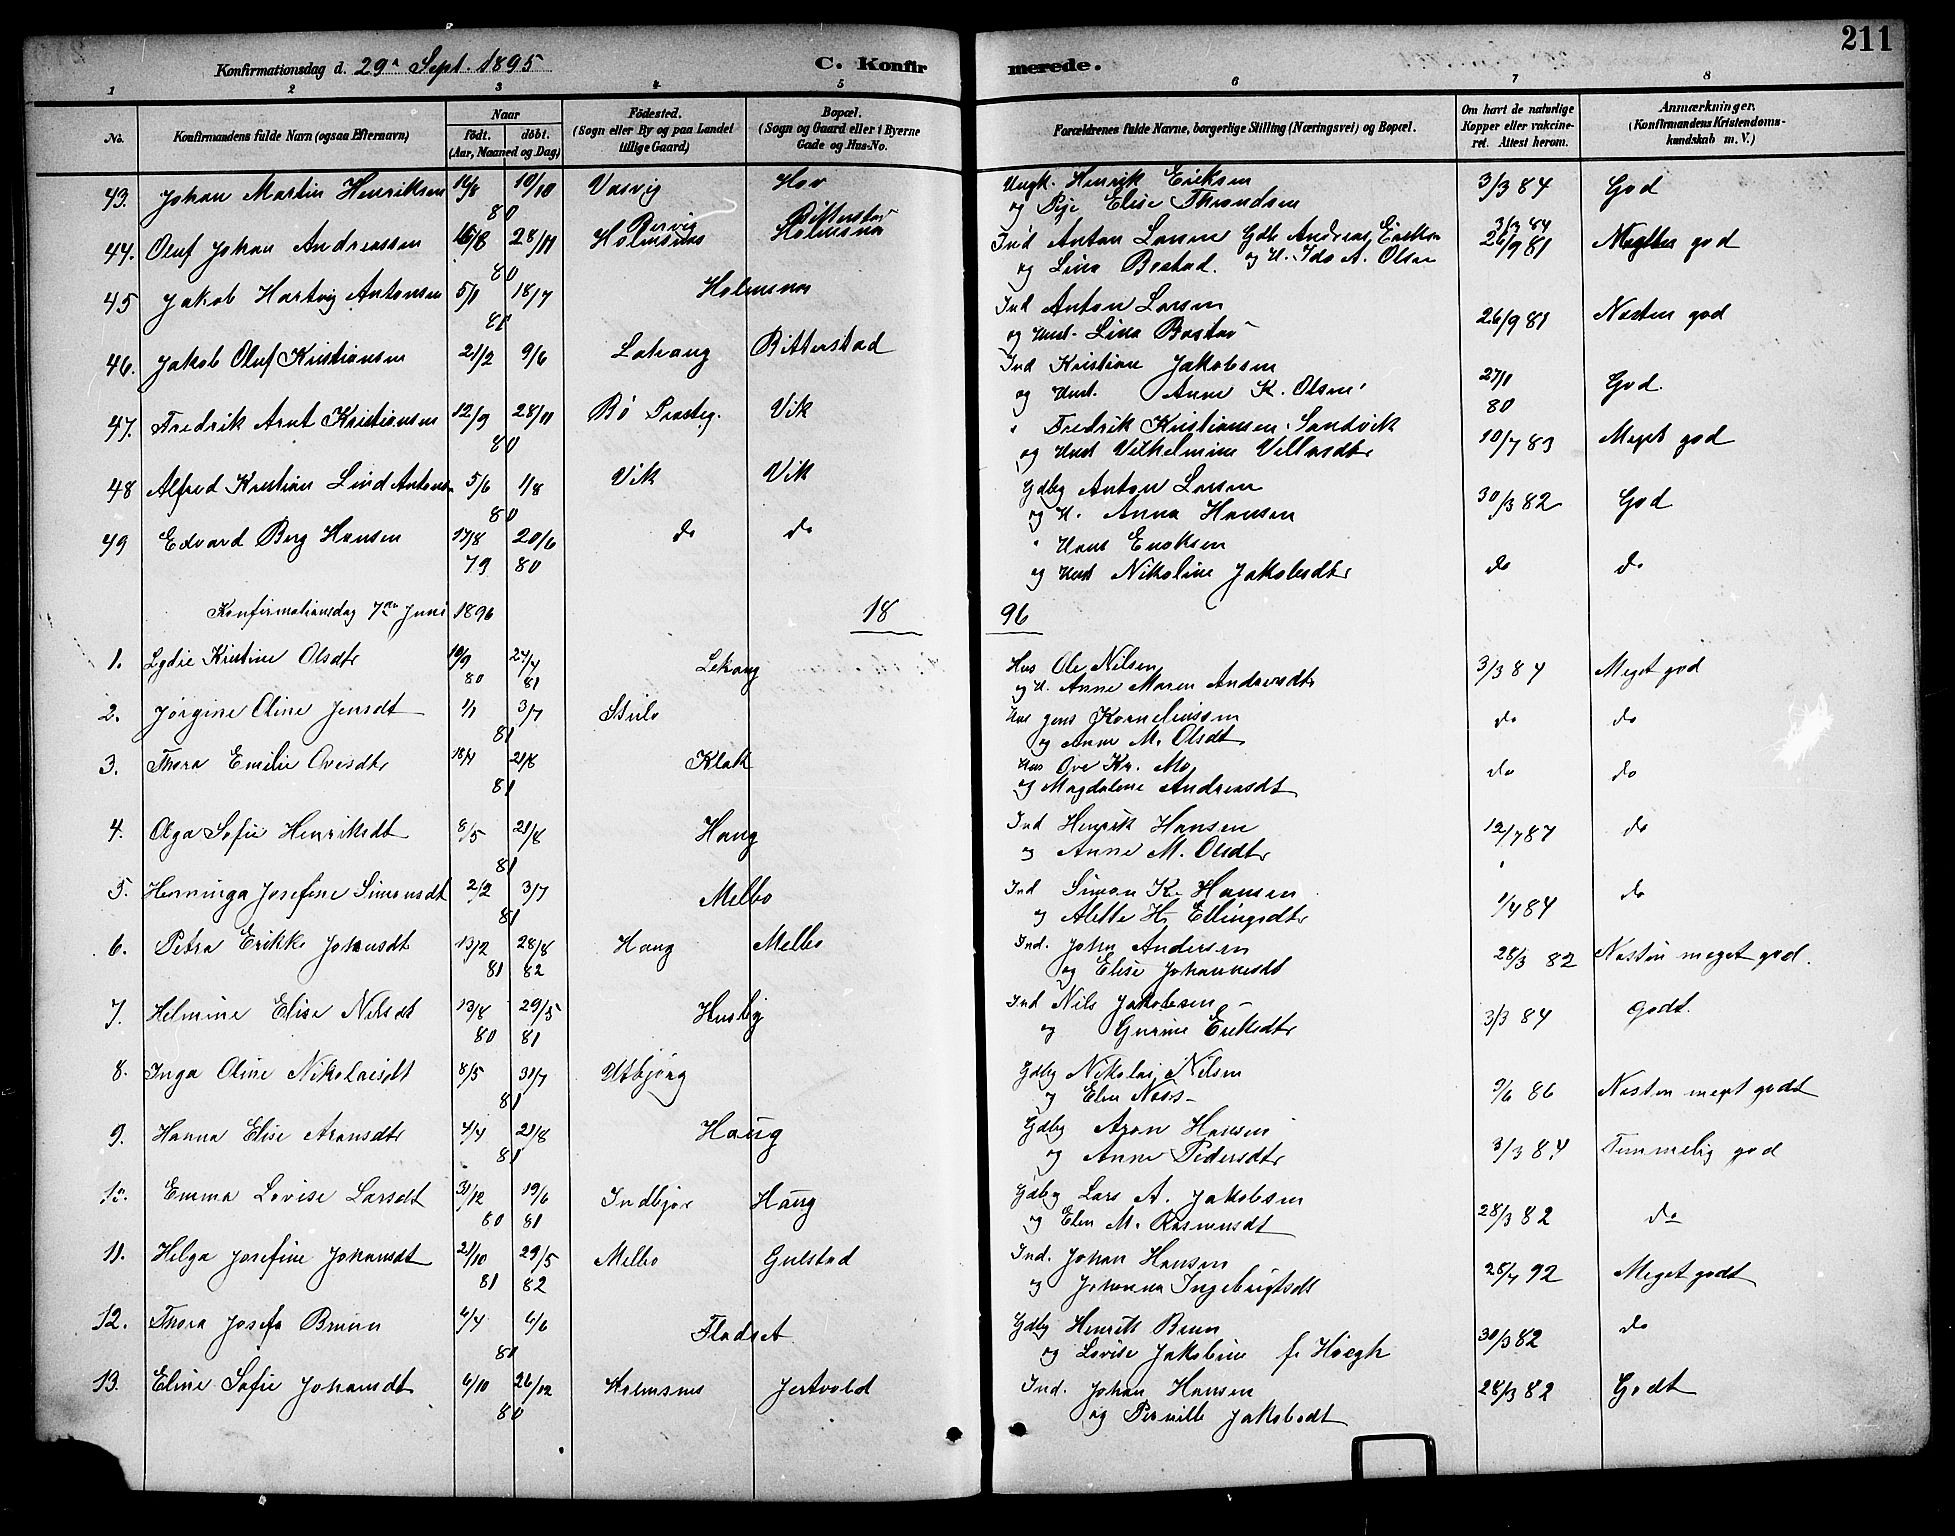 211
Konfirmationsdag d. 29de Sept. 1895 C. Konfirmerede.
1 2 3 4 5 6 7 8
No. Konfirmandens fulde Navn (ogsaa Efternavn) Naar født. døbt. (Aar, Maaned og Dag) Fødested. (Sogn eller By og paa Landet tillige Gaard) Bopæl. (Sogn og Gaard eller i Byerne Gade og Hus-No. Forældrenes fulde Navne, borgerlige Stilling (Næringsvei) og Bopæl. Om havt de naturlige Kopper eller vakcineret. Attest herom. Anmærkninger. (Konfirmandens Kristendomskundskab m. V.)
43. Johan Martin Henriksen 16/8 10/10 Vasvig Hov Ungk. Henrik Eriksen 3/3 84 God
80 og Pige Elise Throndsen
44. Oluf Johan Andreassen 16/8 28/11 Holmsnes Holmsnes Ind Anton Larsen Gdb Andreas Eriksen 26/9 81 Meget god
80 og Lina Bostad. og H. Ida A. Olsen
45 Jakob Hartvig Antonsen 5/1 18/7 Holmsnes Ind Anton Larsen 26/9 81 Næsten god
81 og Hust. Lina Bostad
46. Jakob Oluf Kristiansen 21/2 9/6 Lekang Bitterstad Ind Kristian Jakobsen 27/1 God.
og Hust. Anne K. Olsen 80
47. Fredrik Arnt Kristiansen 12/9 28/11 Bø Præsteg. Vik " Fredrik Kristiansen Sandvik 10/7 83 Meget god
80 og Hust Vilhelmine Villasdtr
48 Alfred Kristian Lind Antons. 5/6 1/8 Vik Vik Gdbg Anton Larsen 30/3 82 God
80 og H. Anna Hansen
49 Edvard Berg Hansen 17/8 20/6 do do " Hans Enoksen do do
79 80 og Hust Nikoline Jakobsdtr
Konfirmationsdag 7de Juni 1896 18 96
1. Lydie Kristine Olsdtr 10/9 24/4 Lekang Hus Ole Nilsen 3/3 84 Meget god
80 81 og H. Anne Maren Andreasdtr
2. Jørgine Oline Jensdt 1/1 3/7 Hus Jens Korneliussen do do
81 og Anne M. Olsdt
3. Thora Emilie Ovesdtr 18/4 21/8 Klak Hus Ove Kr. Mo do do
81 og Magdalene Andreasdt
4. Olga Sofie Henriksdt 8/5 21/8 Haug Ind Henrik Hansen 12/7 87 do
81 og Anne M. Olsdtr
5. Henninga Josefine Simonsdt 2/2 3/7 Melbo Ind Simon Kr. Hansen 1/4 84 do
81 og Alette H. Ellingsdtr
6. Petra Erikke Johansdt 13/2 28/8 Haug Melbo Ind. Johan Andersen 28/3 82 Næsten meget god.
81 82 og Elise Johannesdt
7. Helmine Elise Nilsdt 13/8 29/5 Husby Ind Nils Jakobsen 3/3 84 Godt.
80 81 og Gurine Eriksdtr
8. Inga Oline Nikolaisdt 8/5 31/7 Utbjørg Gdbg Nikolai Nilsen 9/6 86 Næsten meget godt
81 og Elen Næss
9. Hanna Elise Aronsdtr 4/4 21/8 Haug Gdbg Aron Hansen 3/3 84 Temmelig god
81 og Anne Pedersdtr
10. Emma Lovise Larsdt 31/12 19/6 Indbjør Haug Gdbg Lars A. Jakobsen 28/3 82 do
80 81 og Elen M. Rasmusdt
11. Helga Josefine Johansdt 21/10 29/5 Melbo Gulstad Ind. Johan Hansen 28/7 92 Meget godt
81 82 og Johanna Ingebrigtsdt
12. Thora Josefa Bruun 4/4 6/6 Fladset Gdbg Henrik Bruun 30/3 82 do
81 og Lovise Jakobine f. Høegh
13. Eline Sofie Johansdt 6/10 26/12 Holmsnes Jertvold Ind. Johan Hansen 28/3 82 Godt
80 og Pernille Jakobsdt